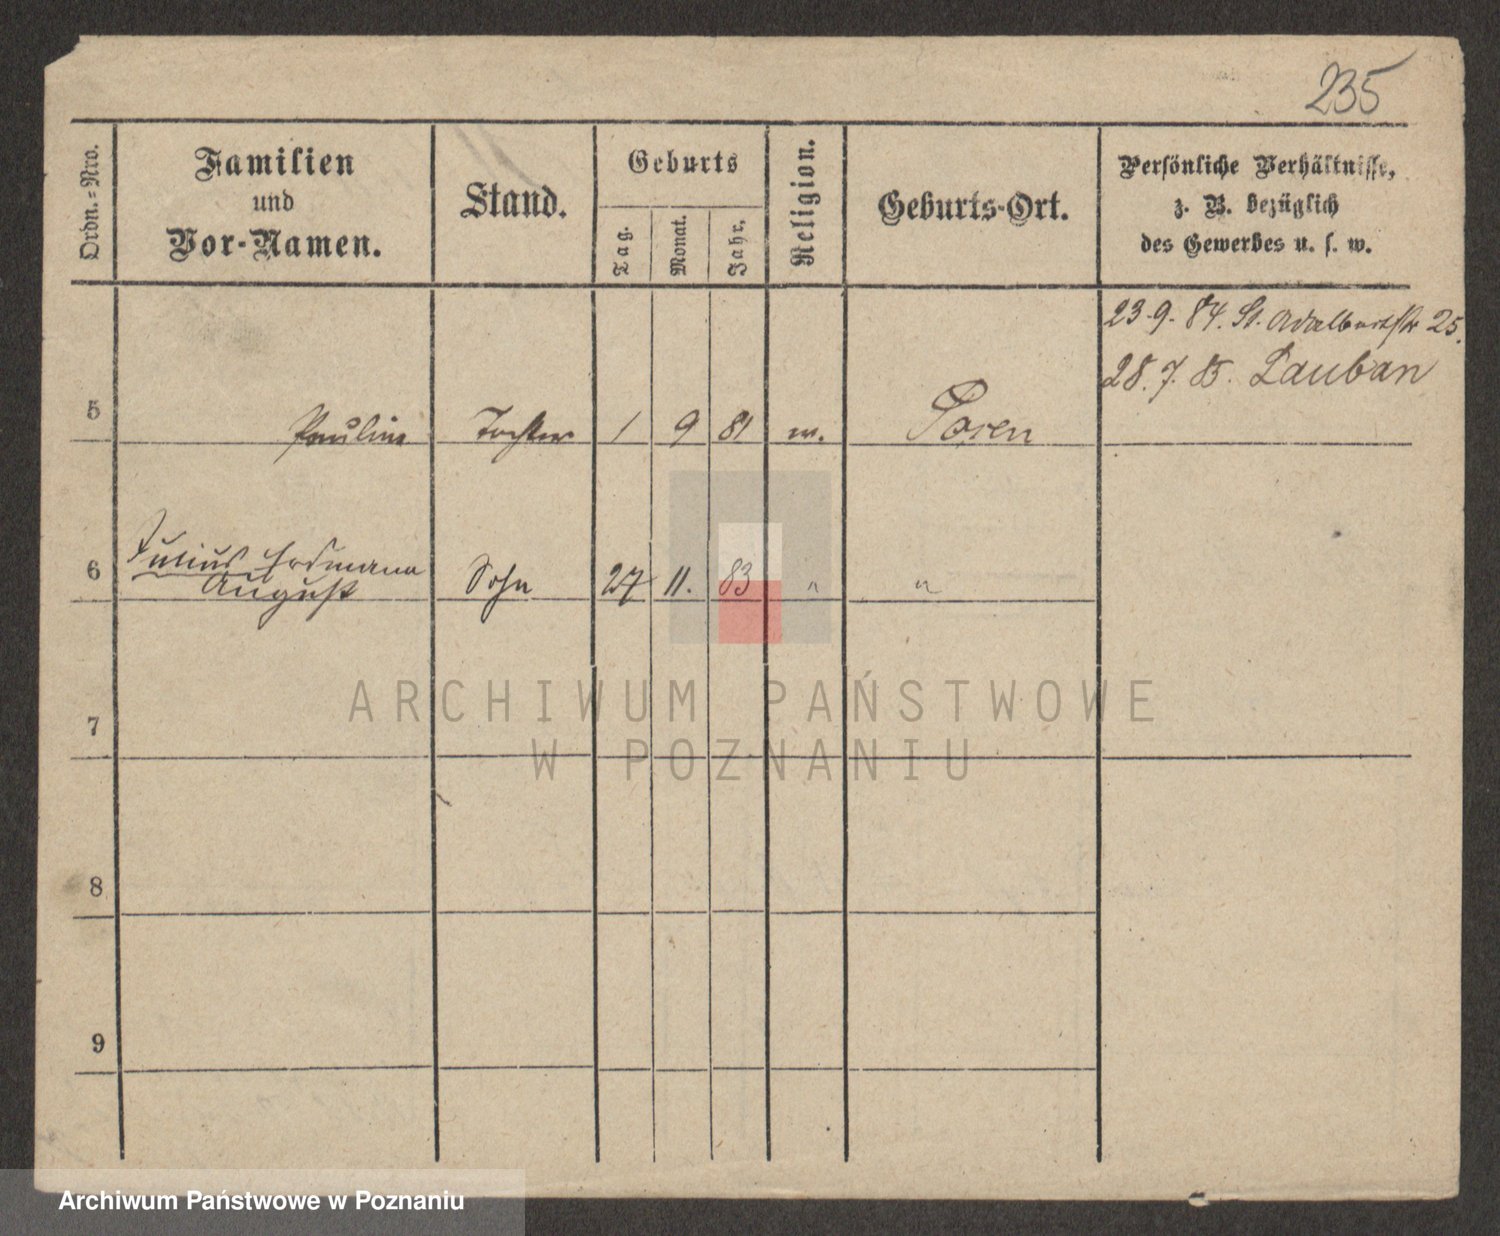 235
Ordn.-Nro.
Familien
und
Vor-Namen.
Stand.
Geburts
Tag.
Monat.
Jahr.
Religion.
Geburts-Ort.
Persönliche Verhältnisse,
z. B. bezüglich
des Gewerbes u. s. w.
23.9.84. St. Adalbertstr 25.
28.7.85. Lauban
5 Pauline Tochter 1 9 81 Posen
6 Julius Erdmann
August Sohn 27 11. 83 " "
7
8
9
ARCHIWUM PAŃSTWOWE
W POZNANIU
Archiwum Państwowe w Poznaniu